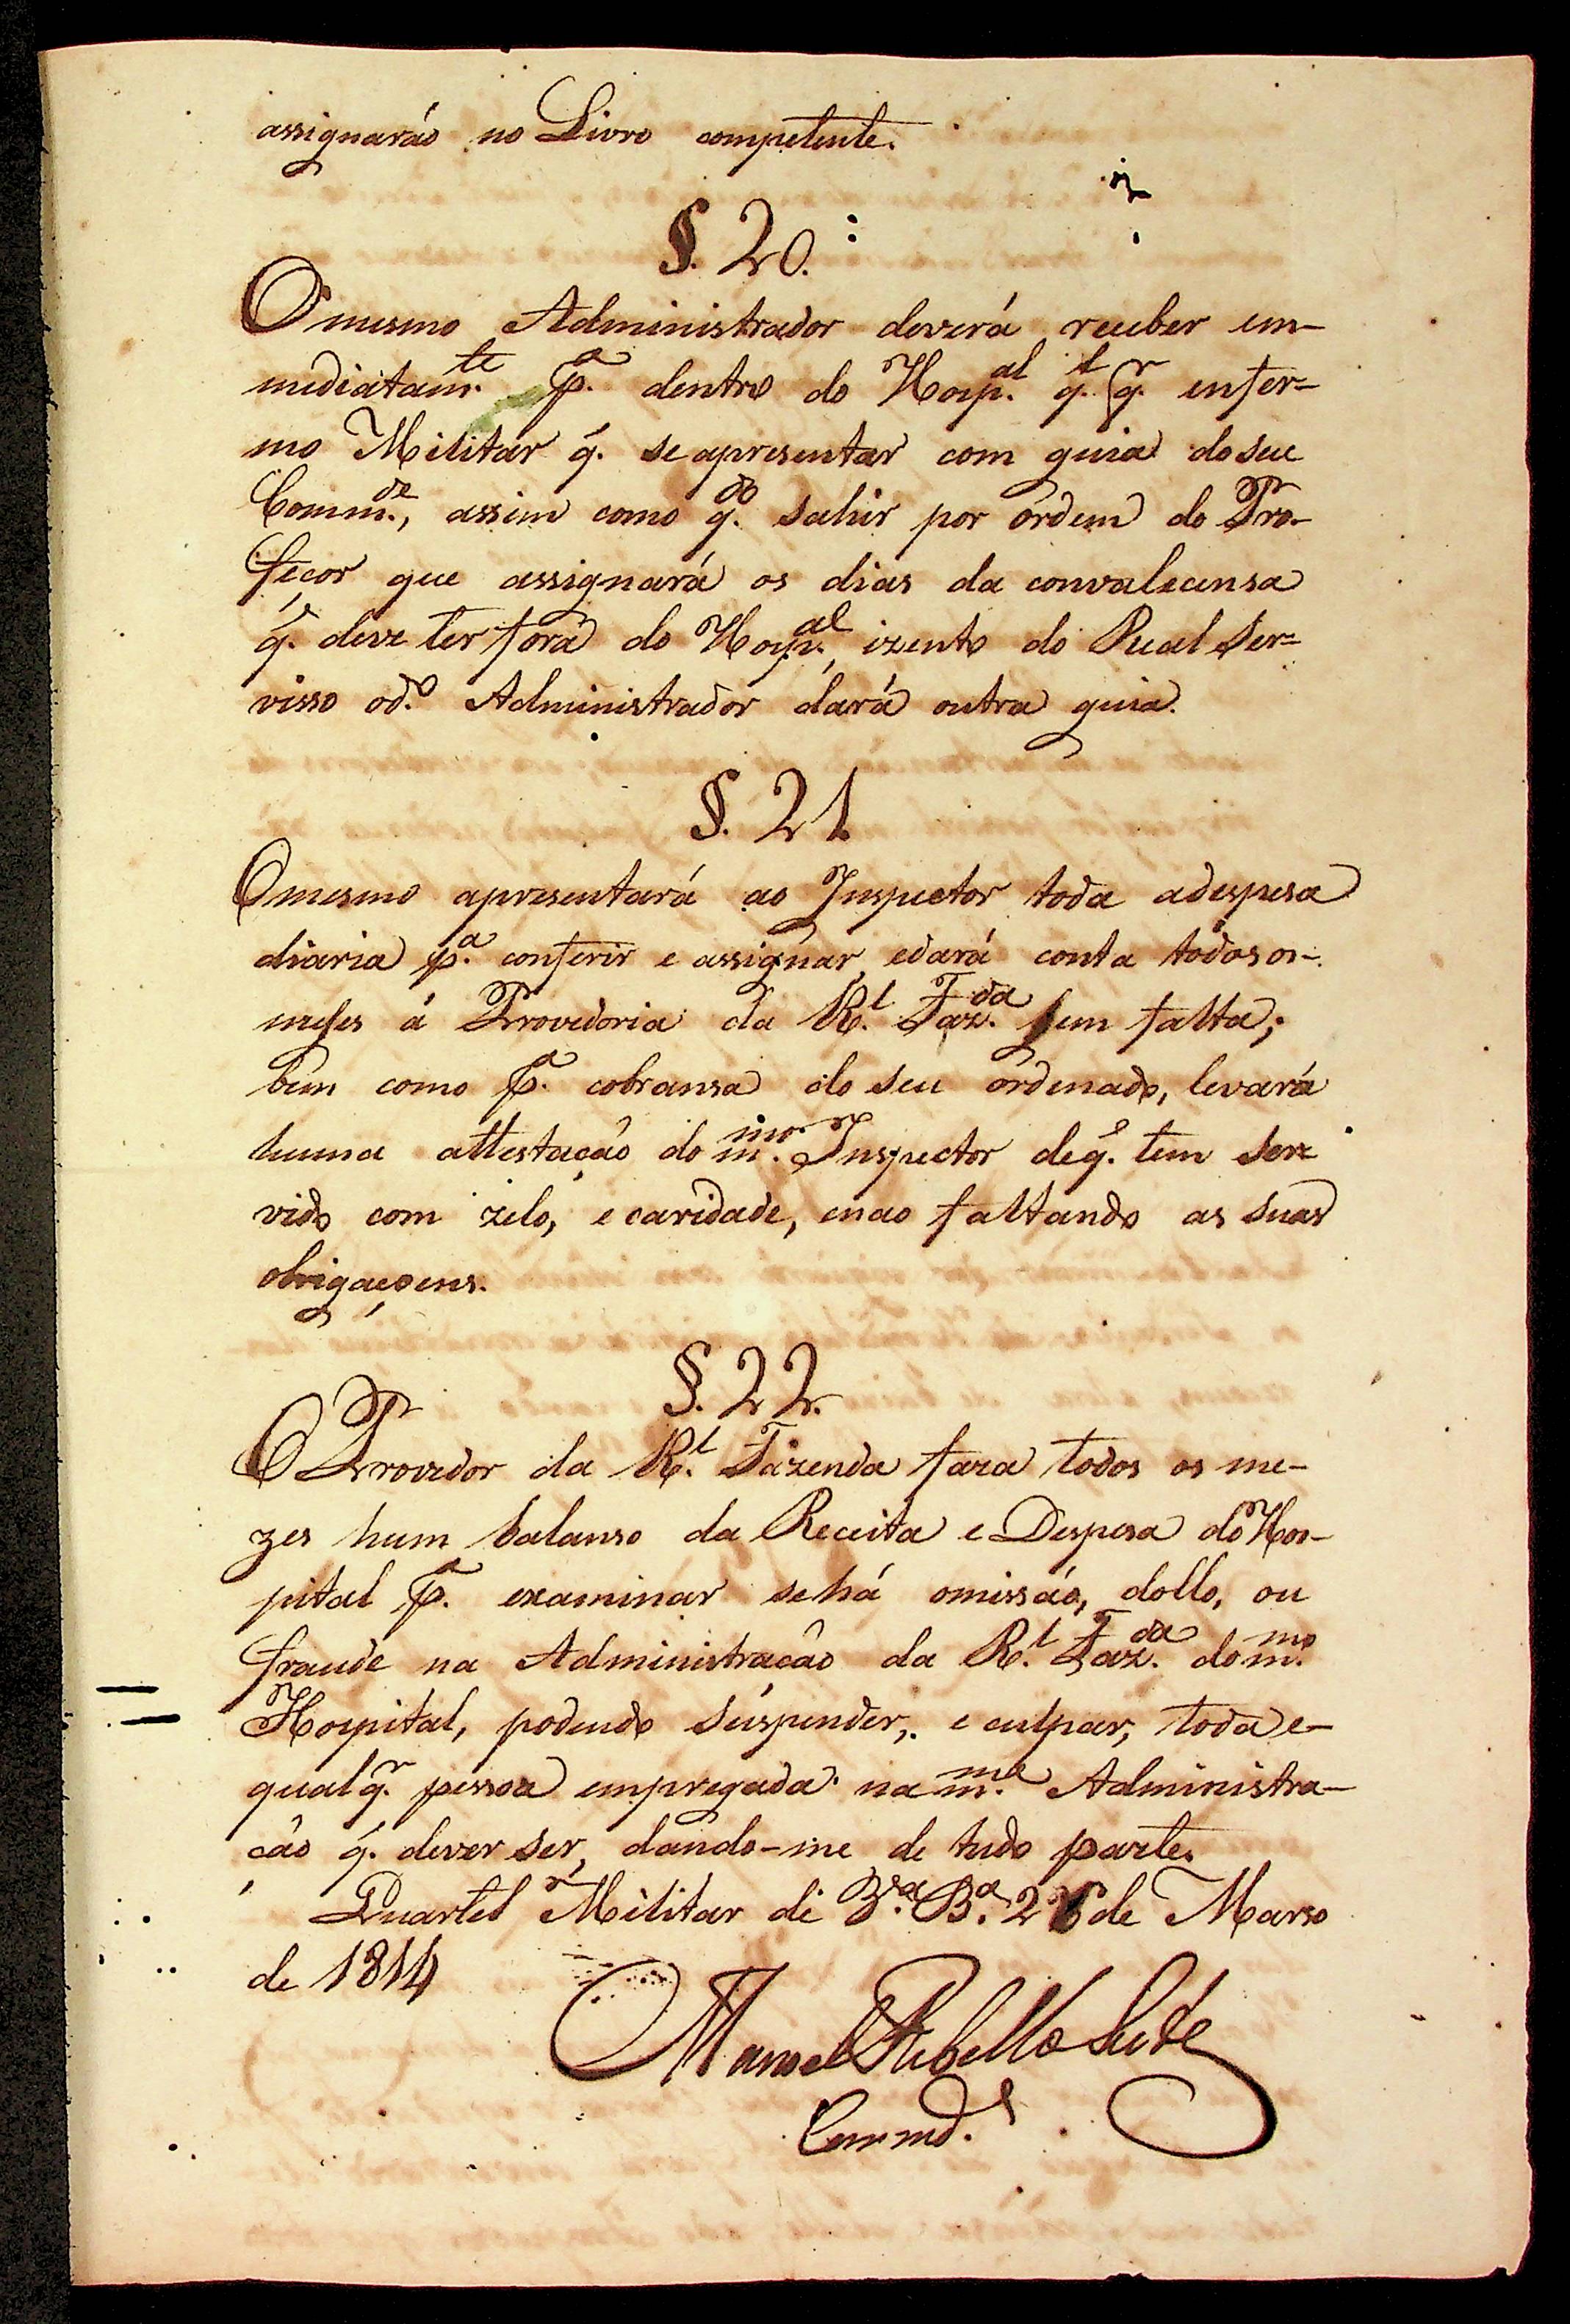 assignaráo no Livro competente.
§. 20.
O mesmo Administrador deverá receber em-
mediatam.te p.a dentro do Hosp.al q.l q.r enfer-
mo Militar q. se apresentar com guia do seu
Comm.de, assim como q.do sahir por ordem do Pro-
feçor que assignará os dias da convalecensa
q. deve ter forá do Hosp.al, izento do Real Ser-
visso o d.o Administrador dará outra guia.
§. 21
O mesmo apresentará ao Inspector toda a despesa
diaria p.a conferir e assignar, e dará conta todos os-
meses á Provedoria da R.l Faz.da sem falta;
bem como p.a cobransa do seu ordenado, levará
huma attestação do m.mo Inspector de q. tem Ser-
vido com zelo, e caridade, e nao faltando as suas
obrigaçoens.
§. 22.
O Provedor da R.l Fazenda fara todos os me-
zes hum balanso da Receita e Despesa do Hos-
pital p.a examinar se há omissáo, dollo, ou
fraude na Administracão da R.l Faz.da do m.mo
Hospital, podendo suspender, e culpar, toda e-
qualq.r pessoa empregada na m.ma Administra-
ção q. dever ser, dando-me de tudo parte.
Quartel Militar de 26 de Marso
de 1814
Manoel Rebello
Commd.e